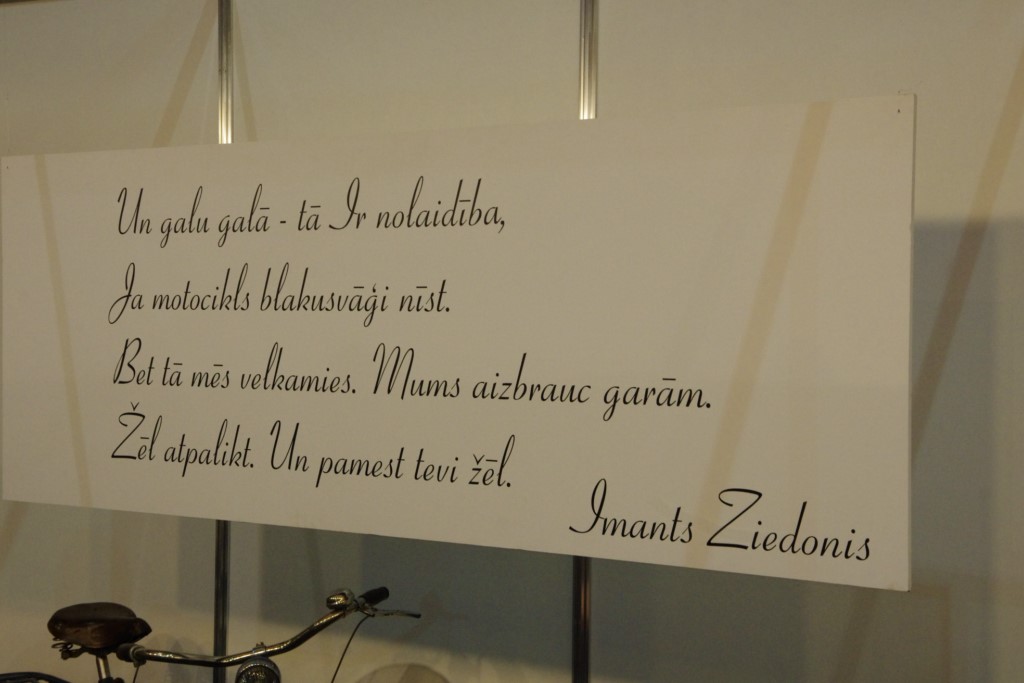 Un galu galā - tā Ir nolaidība,
Ja motocikls blakusvāģi nīst.
Bet tā mēs velkamies. Mums aizbrauc garām.
Žēl atpalikt. Un pamest tevi žēl.
Imants Ziedonis